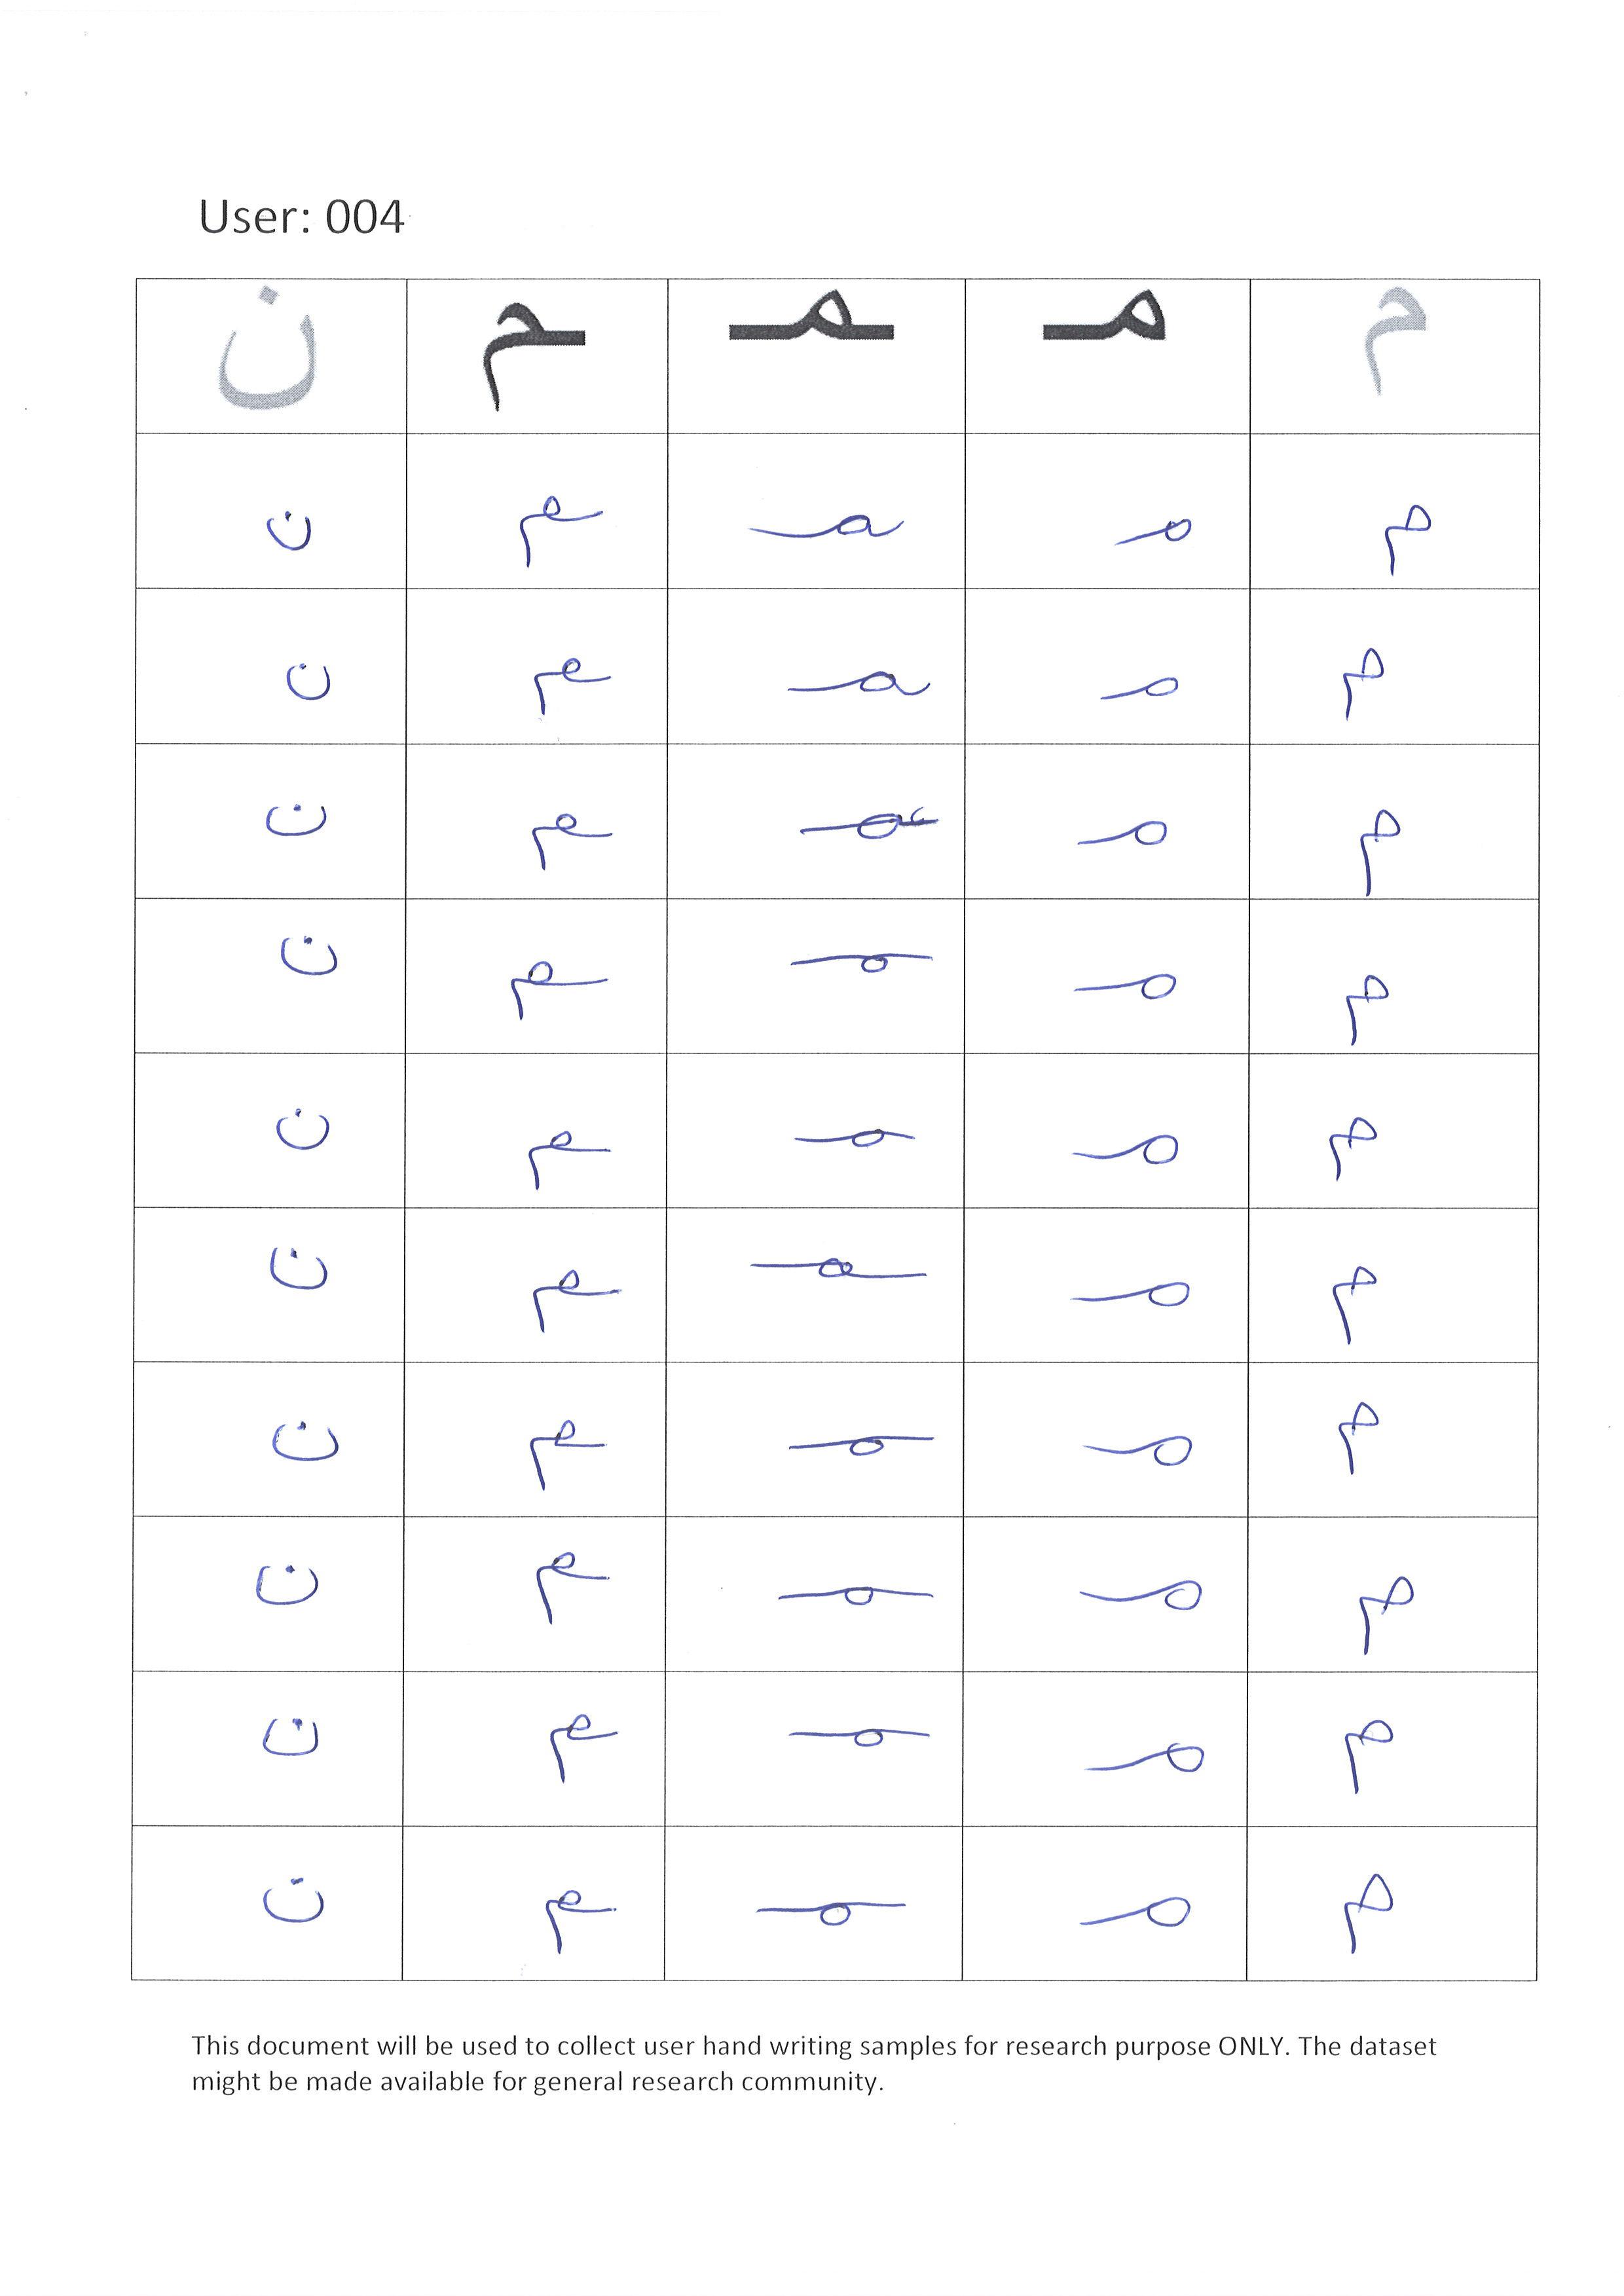 User: 004
م مـ ـمـ ـم ن
م مـ ـمـ ـم ن
م مـ ـمـ ـم ن
م مـ ـمـ ـم ن
م مـ ـمـ ـم ن
م مـ ـمـ ـم ن
م مـ ـمـ ـم ن
م مـ ـمـ ـم ن
م مـ ـمـ ـم ن
م مـ ـمـ ـم ن
م مـ ـمـ ـم ن
This document will be used to collect user hand writing samples for research purpose ONLY. The dataset
might be made available for general research community.